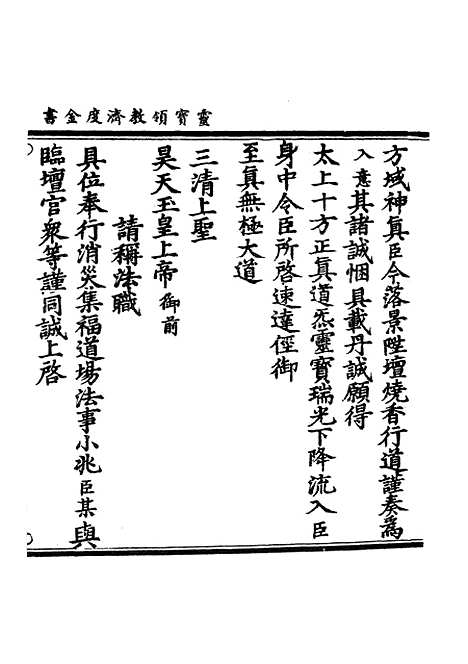 靈寶領教濟度金書
方域神真臣今落景陞壇燒香行道謹奏為
入意其諸誠悃具載丹誠願得
太上十方正真道炁靈寶瑞光下降流入臣
身中令臣所啓速達徑御
至真無極大道
三清上聖
昊天玉皇上帝御前
請稱法職
具位奉行消災集福道場法事小兆臣某與
臨壇官衆等謹同誠上啓